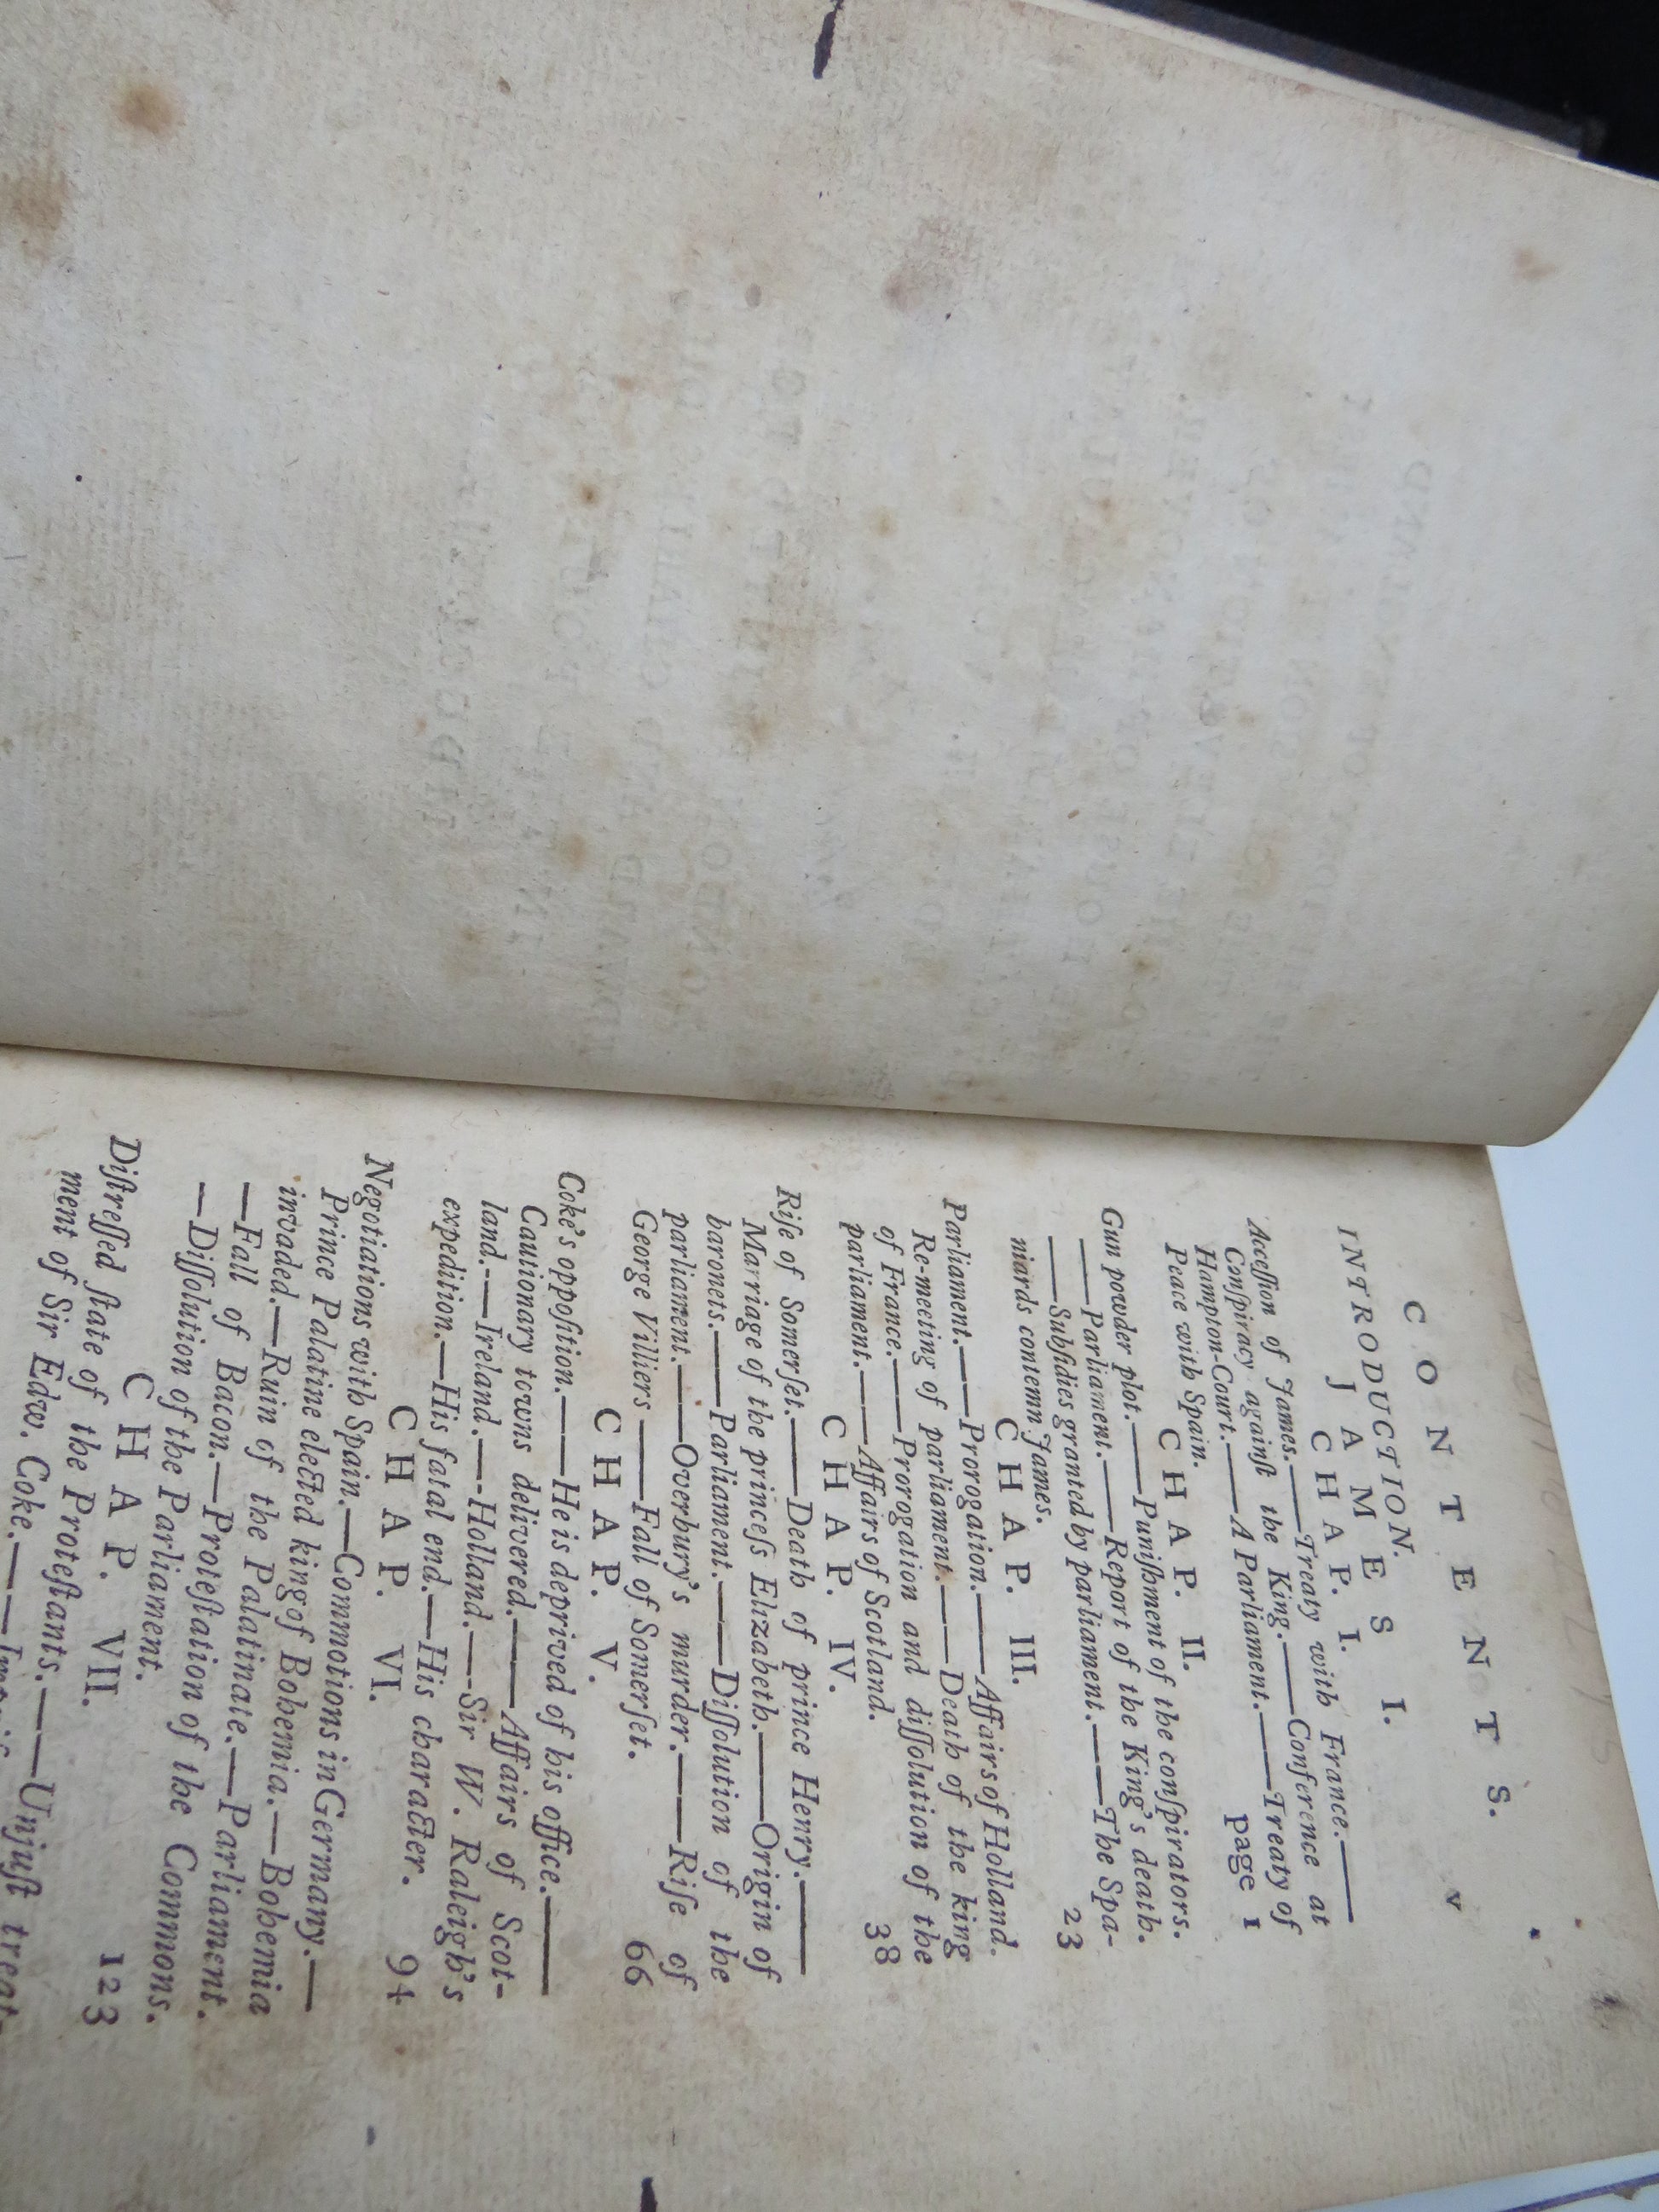 v
C O N T E N T S.
INTRODUCTION.
J A M E S I.
C H A P. I.
Acceſſion of James.——Treaty with France.——
Conſpiracy againſt the King.——Conference at
Hampton-Court.——A Parliament.——Treaty of
Peace with Spain. page 1
C H A P. II.
Gun powder plot.——Puniſhment of the conſpirators.
——Parliament.——Report of the King's death.
——Subſidies granted by parliament.——The Spa-
niards contemn James. 23
C H A P. III.
Parliament.——Prorogation.——Affairs of Holland.
Re-meeting of parliament.——Death of the king
of France.——Prorogation and diſſolution of the
parliament.——Affairs of Scotland. 38
C H A P. IV.
Riſe of Somerſet.——Death of prince Henry.——
Marriage of the princeſs Elizabeth.——Origin of
baronets.——Parliament.——Diſſolution of the
parliament.——Overbury's murder.——Riſe of
George Villiers——Fall of Somerſet. 66
C H A P. V.
Coke's oppoſition.——He is deprived of his office.——
Cautionary towns delivered.——Affairs of Scot-
land.——Ireland.——Holland.——Sir W. Raleigh's
expedition.—His fatal end.—His character. 94
C H A P. VI.
Negotiations with Spain.—Commotions in Germany.—
Prince Palatine elected king of Bohemia.—Bohemia
invaded.—Ruin of the Palatinate.—Parliament.
—Fall of Bacon.—Proteſtation of the Commons.
—Diſſolution of the Parliament. 123
C H A P. VII.
Diſtreſſed ſtate of the Proteſtants.——Unjuſt treat-
ment of Sir Edw. Coke.——